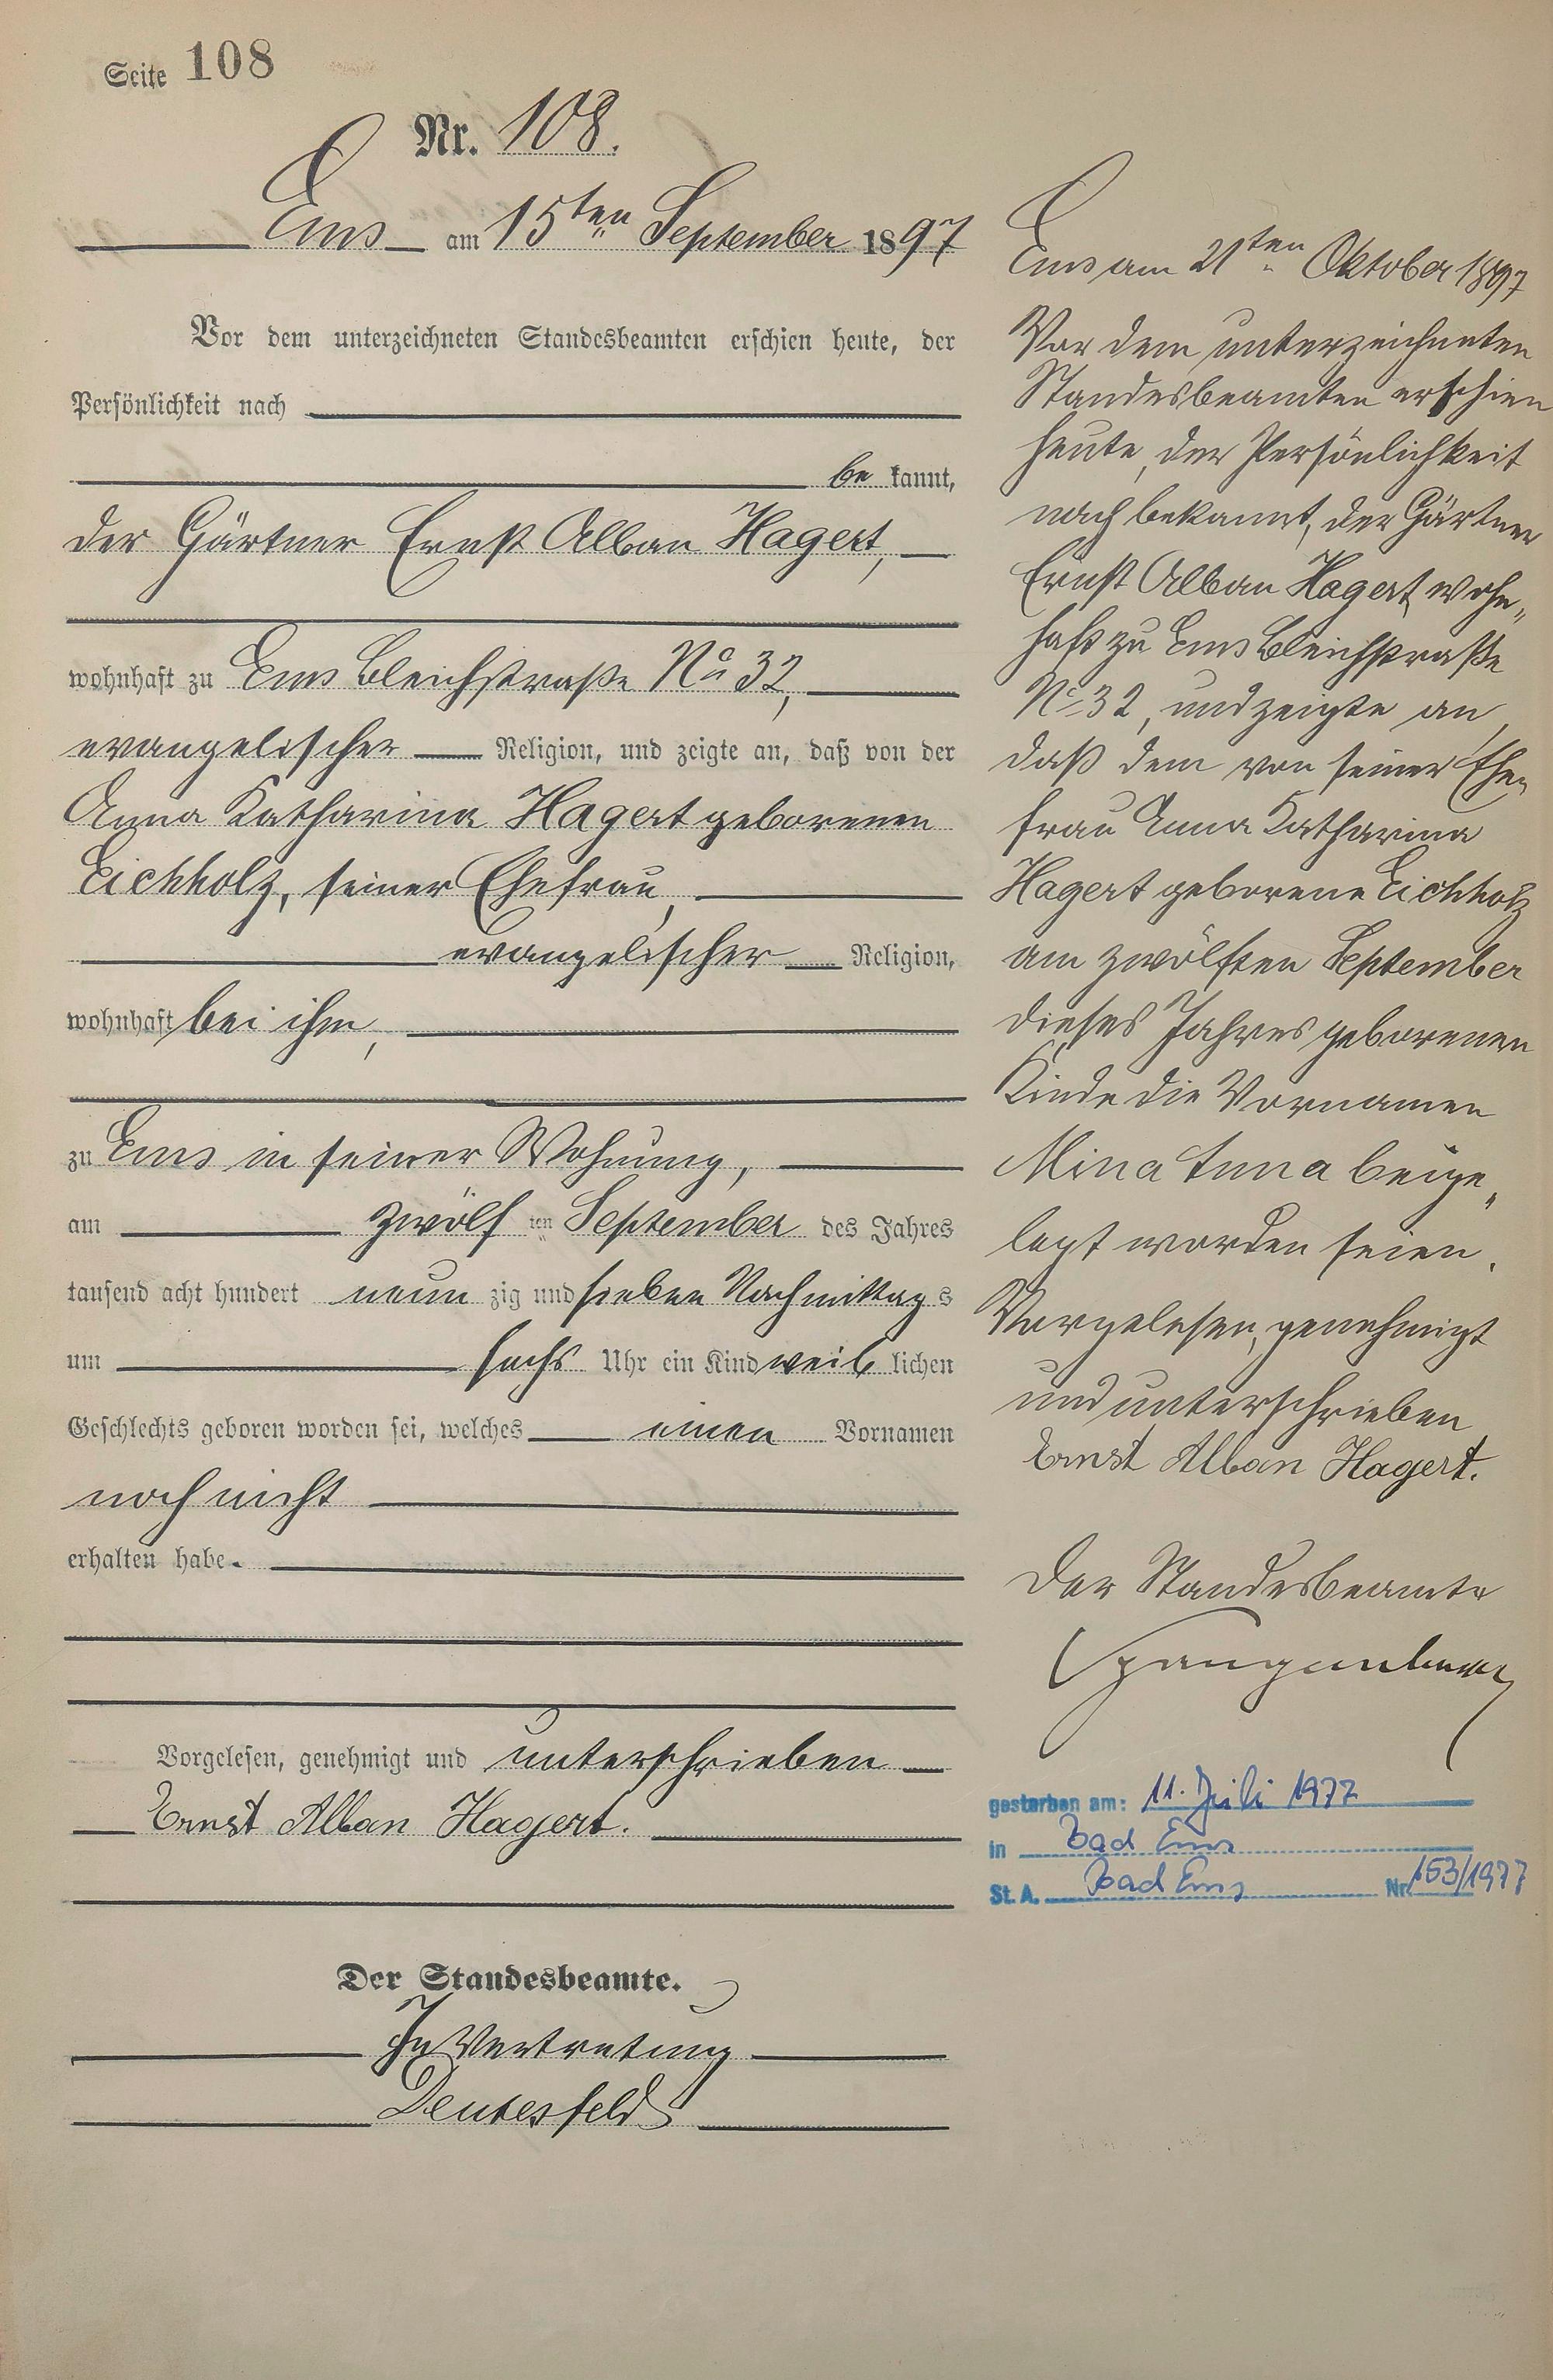 Seite 108
Nr. 108.
Ems am 15ten September 1897
Vor dem unterzeichneten Standesbeamten erschien heute, der
Persönlichkeit nach
be kannt,
der Gärtner Ernst Alban Hagert,
wohnhaft zu Ems Bleichstraße No 32,
evangelischer Religion, und zeigte an, daß von der
Anna Katharina Hagert geborenen
Eichholz, seiner Ehefrau,
evangelischer Religion,
wohnhaft bei ihm,
zu Ems in seiner Wohnung,
am zwölf ten September des Jahres
tausend acht hundert neun zig und sieben Nachmittag s
um sechs Uhr ein Kind weib lichen
Geschlechts geboren worden sei, welches einen Vornamen
noch nicht
erhalten habe.
Vorgelesen, genehmigt und unterschrieben
Ernst Alban Hagert.
Der Standesbeamte.
In Vertretung
Deutesfeld
Ems am 21ten Oktober 1897
Vor dem unterzeichneten
Standesbeamten erschien
heute, der Persönlichkeit
nach bekannt, der Gärtner
Ernst Alban Hagert, wohn„
haft zu Ems Bleichstraße
No 32, und zeigte an,
daß dem von seiner Ehe„
frau Anna Katharina
Hagert geborene Eichholz
am zwölften September
dieses Jahres geborenen
Kinde die Vornamen
Mina Anna beige„
legt worden seien.
Vorgelesen, genehmigt
und unterschrieben
Ernst Alban Hagert.
Der Standesbeamte
gestorben am: 11. Juli 1977
in Bad Ems
St. A. Bad Ems Nr. 153/1977